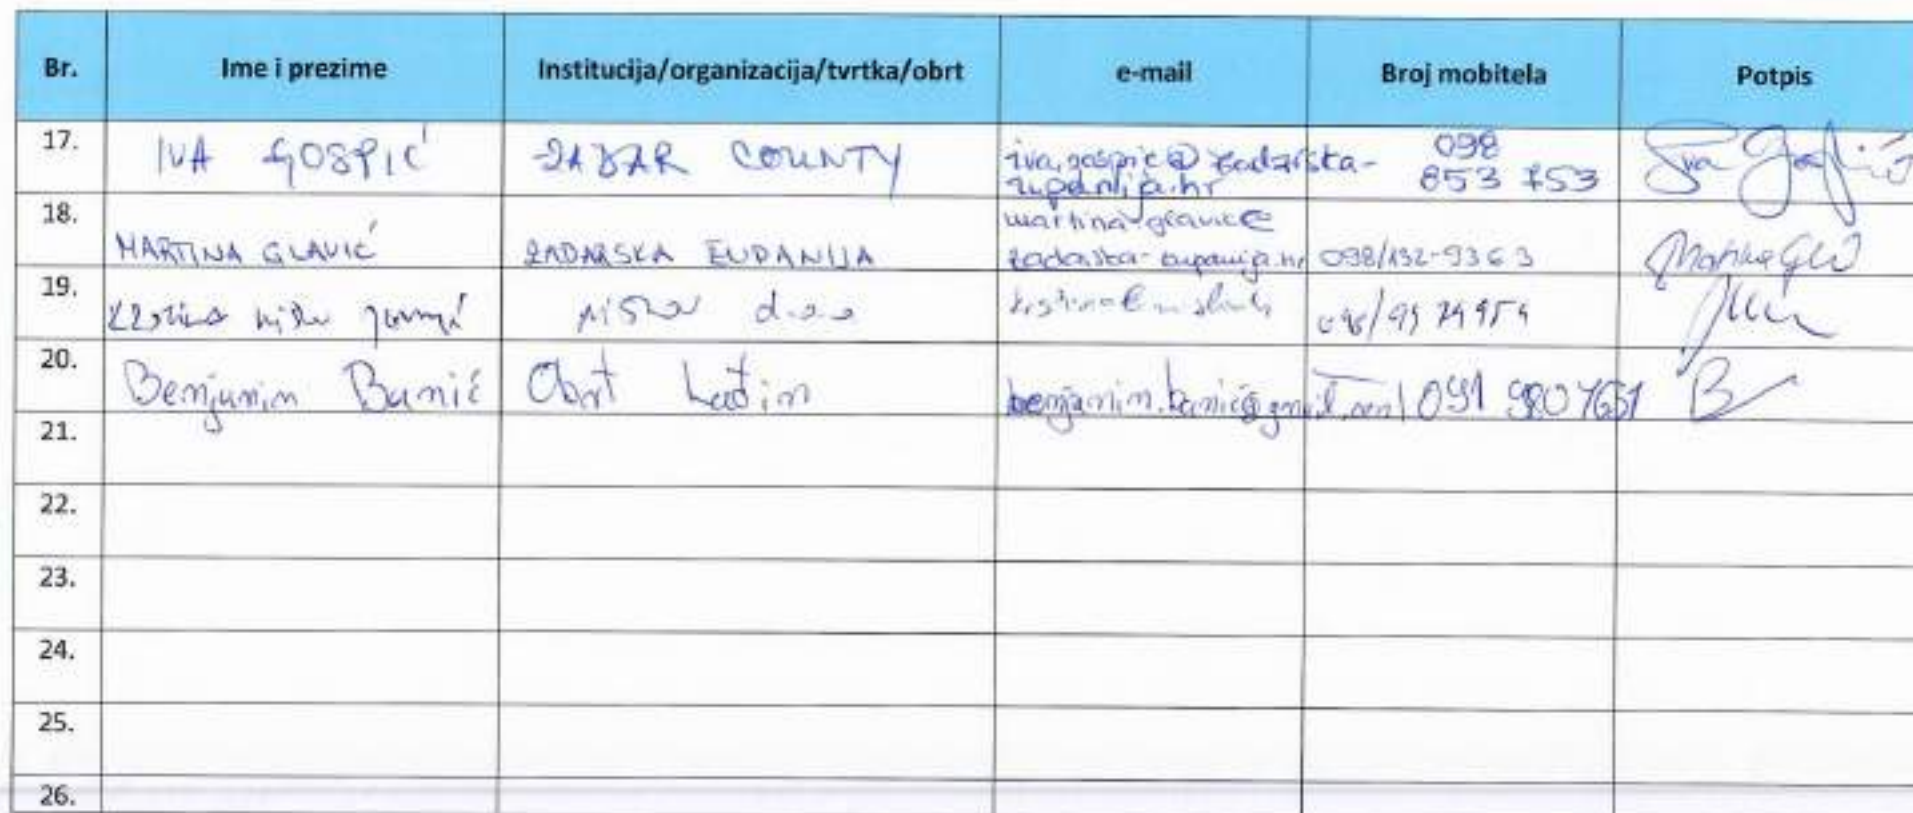 Br. Ime i prezime Institucija/organizacija/tvrtka/obrt e-mail Broj mobitela Potpis
17. IVA GOSPIĆ ZADAR COUNTY iva.gospic@zadarska- 098
zupanija.hr 853 753
18. MARTINA GLAVIĆ ZADARSKA ŽUPANIJA martina.glavic@
zadarska-zupanija.hr 098/132-9363
19. d.o.o
20. Benjamin Banić Obrt Lađin benjamin.banic@gmail.com 091 980 7651
21.
22.
23.
24.
25.
26.